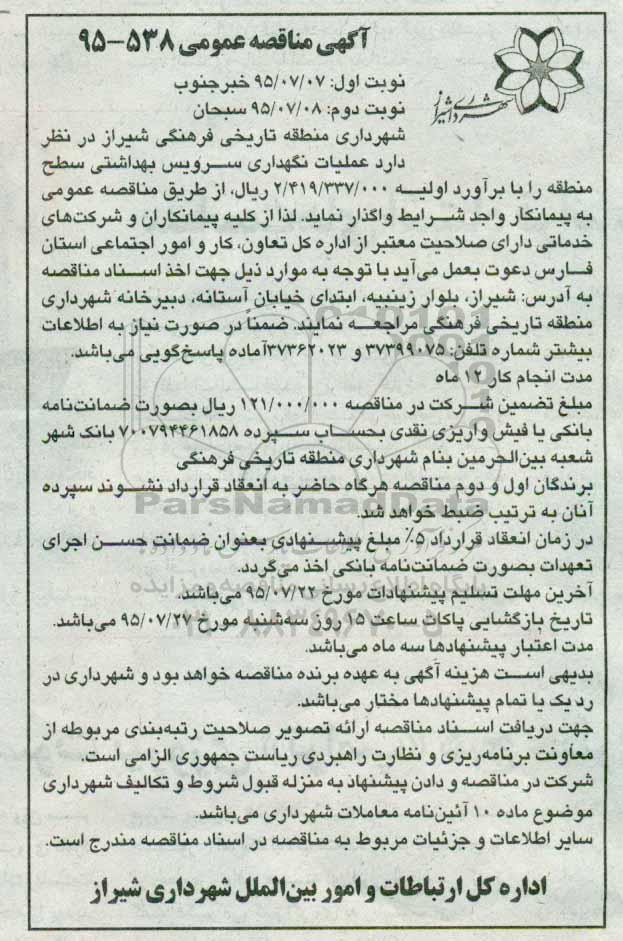 آگهی مناقصه عمومی ۵۳۸-۹۵
شهرداری شیراز
نوبت اول: ۹۵/۰۷/۰۷ خبرجنوب
نوبت دوم: ۹۵/۰۷/۰۸ سبحان
شهرداری منطقه تاریخی فرهنگی شیراز در نظر
دارد عملیات نگهداری سرویس بهداشتی سطح
منطقه را با برآورد اولیه ۲/۴۱۹/۳۳۷/۰۰۰ ریال، از طریق مناقصه عمومی
به پیمانکار واجد شرایط واگذار نماید. لذا از کلیه پیمانکاران و شرکت‌های
خدماتی دارای صلاحیت معتبر از اداره کل تعاون، کار و امور اجتماعی استان
فارس دعوت بعمل می‌آید با توجه به موارد ذیل جهت اخذ اسناد مناقصه
به آدرس: شیراز، بلوار زینبیه، ابتدای خیابان آستانه، دبیرخانه شهرداری
منطقه تاریخی فرهنگی مراجعه نمایند. ضمناً در صورت نیاز به اطلاعات
بیشتر شماره تلفن: ۳۷۳۹۹۰۷۵ و ۳۷۳۶۲۰۲۳آماده پاسخ‌گویی می‌باشد.
مدت انجام کار ۱۲ ماه
مبلغ تضمین شرکت در مناقصه ۱۲۱/۰۰۰/۰۰۰ ریال بصورت ضمانت‌نامه
بانکی یا فیش واریزی نقدی بحساب سپرده ۷۰۰۷۹۴۴۶۱۸۵۸ بانک شهر
شعبه بین‌الحرمین بنام شهرداری منطقه تاریخی فرهنگی
برندگان اول و دوم مناقصه هرگاه حاضر به انعقاد قرارداد نشوند سپرده
آنان به ترتیب ضبط خواهد شد.
ParsNamadData
در زمان انعقاد قرارداد ۵٪ مبلغ پیشنهادی بعنوان ضمانت حسن اجرای
تعهدات بصورت ضمانت‌نامه بانکی اخذ می‌گردد.
آخرین مهلت تسلیم پیشنهادات مورخ ۹۵/۰۷/۲۶ می‌باشد.
تاریخ بازگشایی پاکات ساعت ۱۵ روز سه‌شنبه مورخ ۹۵/۰۷/۲۷ می‌باشد.
مدت اعتبار پیشنهادها سه ماه می‌باشد.
بدیهی است هزینه آگهی به عهده برنده مناقصه خواهد بود و شهرداری در
رد یک یا تمام پیشنهادها مختار می‌باشد.
جهت دریافت اسناد مناقصه ارائه تصویر صلاحیت رتبه‌بندی مربوطه از
معاونت برنامه‌ریزی و نظارت راهبردی ریاست جمهوری الزامی است.
شرکت در مناقصه و دادن پیشنهاد به منزله قبول شروط و تکالیف شهرداری
موضوع ماده ۱۰ آئین‌نامه معاملات شهرداری می‌باشد.
سایر اطلاعات و جزئیات مربوط به مناقصه در اسناد مناقصه مندرج است.
اداره کل ارتباطات و امور بین‌الملل شهرداری شیراز